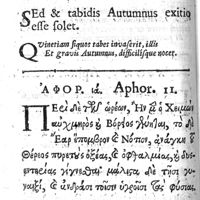 SEd & tabidis Autumnus exitio
esse solet.
QVinetiam siquos tabes invaserit, illis
Et gravis Autumnus, difficilisque nocet.
ΑΦΟΡ. ια. Aphor. 11.
Περὶ δὲ τῶν ὡρέων, Ἢν ὁ Χειμὼν
αὐχμηρὸς καὶ Βόρειος γένηται, τὸ δὲ
Ἔαρ ἔπομβρον καὶ Νότιον, ἀνάγκη τοῦ
Θέρεος πυρετοὺς ὀξέας, καὶ ὀφθαλμίας, καὶ δυσεν-
τερίας γίγνεσθαι, μάλιστα δὲ τῇσι γυ-
ναιξὶ, καὶ ἀνδράσι τοῖσιν ὑγροῖς τὰς φύσιας.